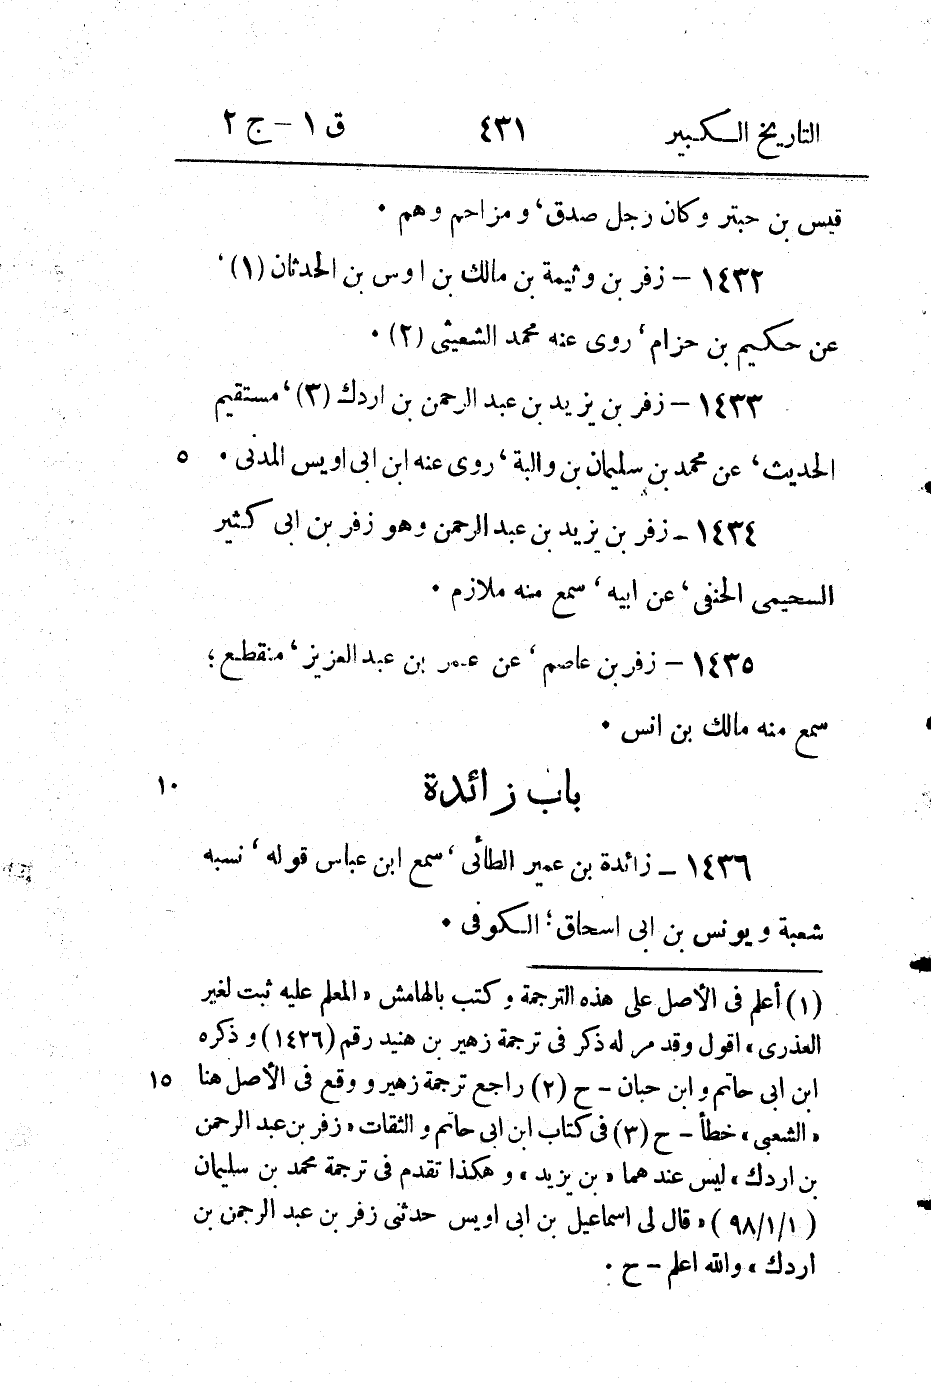 التاريخ الكبير ٤٣١ ق ١ - ج ٢
قيس بن حبتر وكان رجل صدق، و مزاحم وهم ٠
١٤٣٢ - زفر بن وثيمة بن مالك بن اوس بن الحدثان (١)،
عن حكيم بن حزام، روى عنه محمد الشعيثى (٢) ٠
١٤٣٣ - زفر بن يزيد بن عبد الرحمن بن اردك (٣)، مستقيم
الحديث، عن محمد بن سليمان بن والبة، روى عنه ابن ابى اويس المدنى ٠ ٥
١٤٣٤ - زفر بن يزيد بن عبد الرحمن وهو زفر بن ابى كثير
السحيمى الحنفى، عن ابيه، سمع منه ملازم ٠
١٤٣٥ - زفر بن عاصم، عن عمر بن عبد العزيز، منقطع؛
سمع منه مالك بن انس ٠
باب زائدة ١٠
١٤٣٦ - زائدة بن عمير الطائى، سمع ابن عباس قوله، نسبه
شعبة و يونس بن ابى اسحاق؛ الكوفى ٠
(١) أعلم فى الأصل على هذه الترجمة و كتب بالهامش « المعلم عليه ثبت لغير
العذرى » اقول وقد مر له ذكر فى ترجمة زهير بن هنيد رقم (١٤٢٦) و ذكره
ابن ابى حاتم و ابن حبان - ح (٢) راجع ترجمة زهير و وقع فى الأصل هنا ١٥
« الشعبى » خطأ - ح (٣) فى كتاب ابن ابى حاتم و الثقات « زفر بن عبد الرحمن
بن اردك » ليس عند هما « بن يزيد » و هكذا تقدم فى ترجمة محمد بن سليمان
(٩٨/١/١) « قال لى اسماعيل بن ابى اويس حدثنى زفر بن عبد الرحمن بن
اردك » والله اعلم - ح ٠